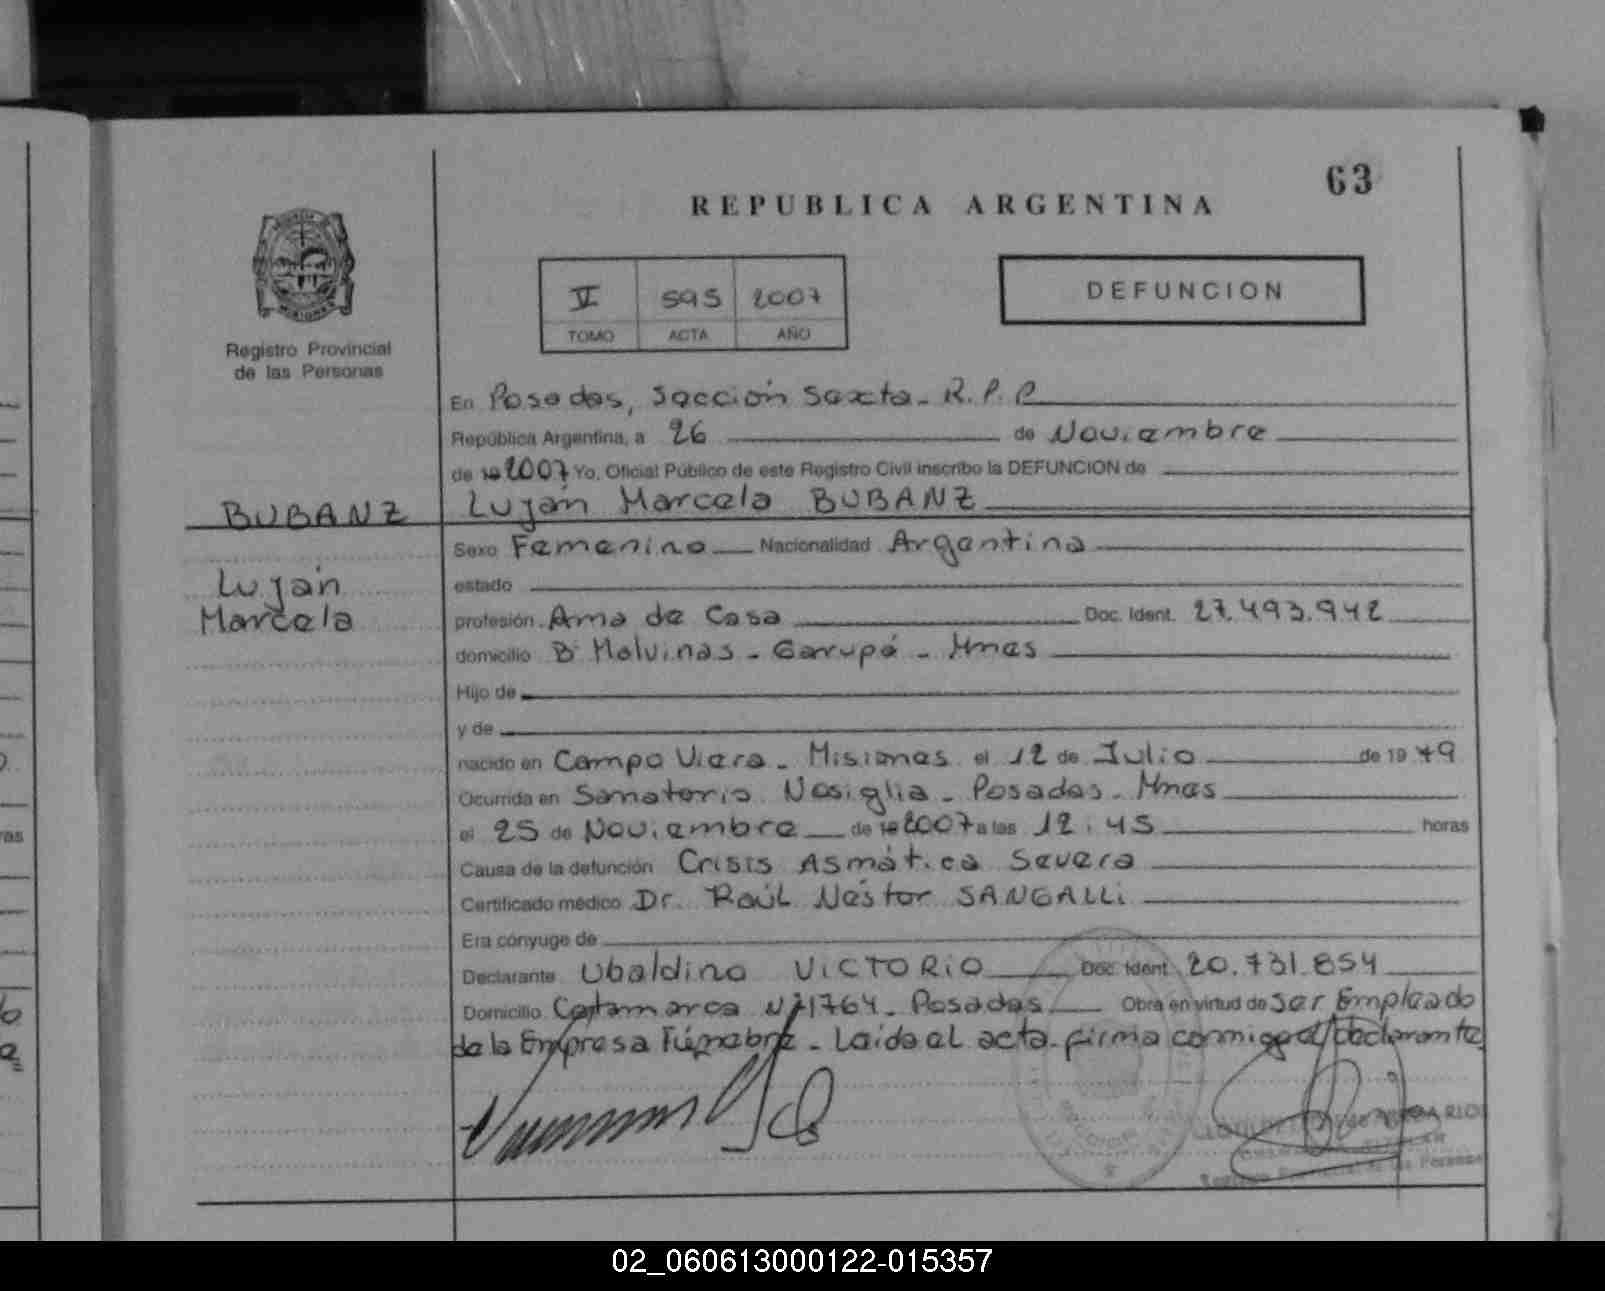 63
REPUBLICA ARGENTINA
VI 595 2007
TOMO ACTA AÑO
DEFUNCION
Registro Provincial
de las Personas
En Posadas, Sección Sexta - R.P.P
República Argentina, a 26 de Noviembre
de 19 2007 Yo, Oficial Público de este Registro Civil inscribo la DEFUNCION de
BUBANZ Luján Marcela BUBANZ
Sexo Femenino Nacionalidad Argentina
Luján estado
Marcela profesión Ama de Casa Doc. Ident. 27.493.942
domicilio B° Malvinas - Garupá - Mnes
Hijo de
y de
nacido en Campo Viera - Misiones el 12 de Julio de 19 79
Ocurrida en Sanatorio Nosiglia - Posadas - Mnes
el 25 de Noviembre de 19 2007 a las 12:45 horas
Causa de la defunción Crisis Asmática Severa
Certificado médico Dr. Raúl Néstor SANGALLi
Era cónyuge de
Declarante Ubaldino VICTORIO Doc. Ident. 20.731.854
Domicilio Catamarca Nº1764 - Posadas Obra en virtud de ser Empleado
de la Empresa Fúnebre - Leída el acta firma conmigo el declarante
Registro Provincial de las Personas
02_060613000122-015357